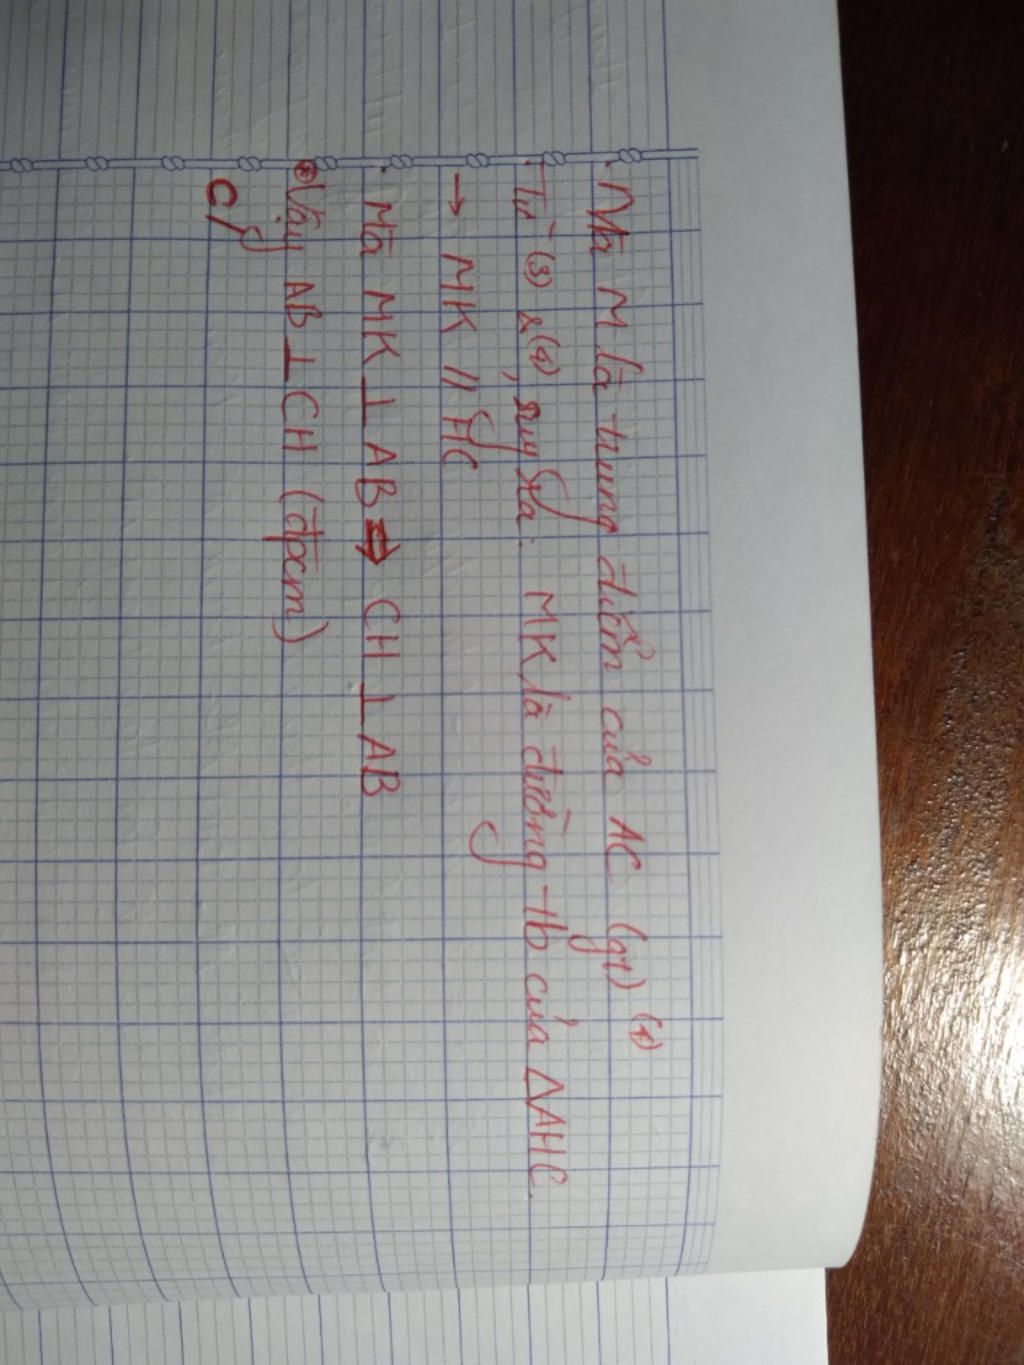 . Mà M là trung điểm của AC (gt) (4)
. Từ (3) & (4), suy ra: MK là đường tb của ΔAHC.
→ MK // HC
. Mà MK ⊥ AB ⇒ CH ⊥ AB
⊛ Vậy AB ⊥ CH (đpcm)
c/